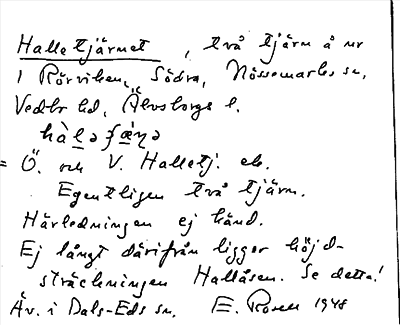 Halletjärnet, två tjärn å nr
1 Rörviken, Södra, Nössemarks sn,
Vedbo hd, Älvsborgs l.
hàləʃæ̀ṇə
= Ö. och V. Halletj. ek.
Egentligen två tjärn.
Härledningen ej känd.
Ej långt därifrån ligger höjd-
sträckningen Hallåsen. Se detta!
Äv. i Dals-Eds sn. E. Rosell 1948